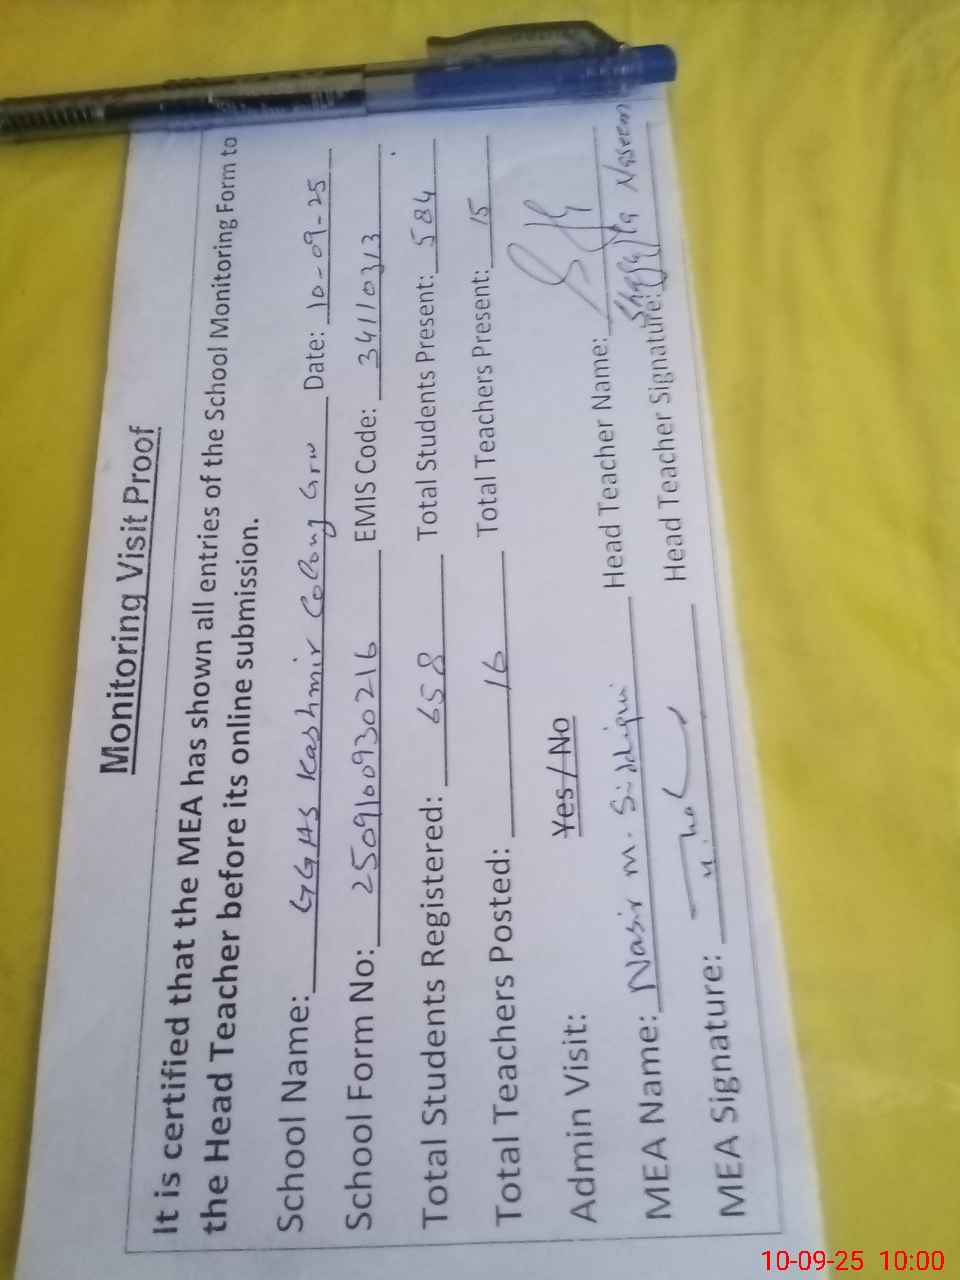 Monitoring Visit Proof
It is certified that the MEA has shown all entries of the School Monitoring Form to
the Head Teacher before its online submission.
School Name: GGHS Kashmir Colony Grw Date: 10-09-25
School Form No: 2509100930216 EMIS Code: 34110313
Total Students Registered: 658 Total Students Present: 584
Total Teachers Posted: 16 Total Teachers Present: 15
Admin Visit: Yes / No
MEA Name: Nasir M. Siddiqui Head Teacher Name:
MEA Signature: Head Teacher Signature: Shagufta Naseem
10-09-25 10:00